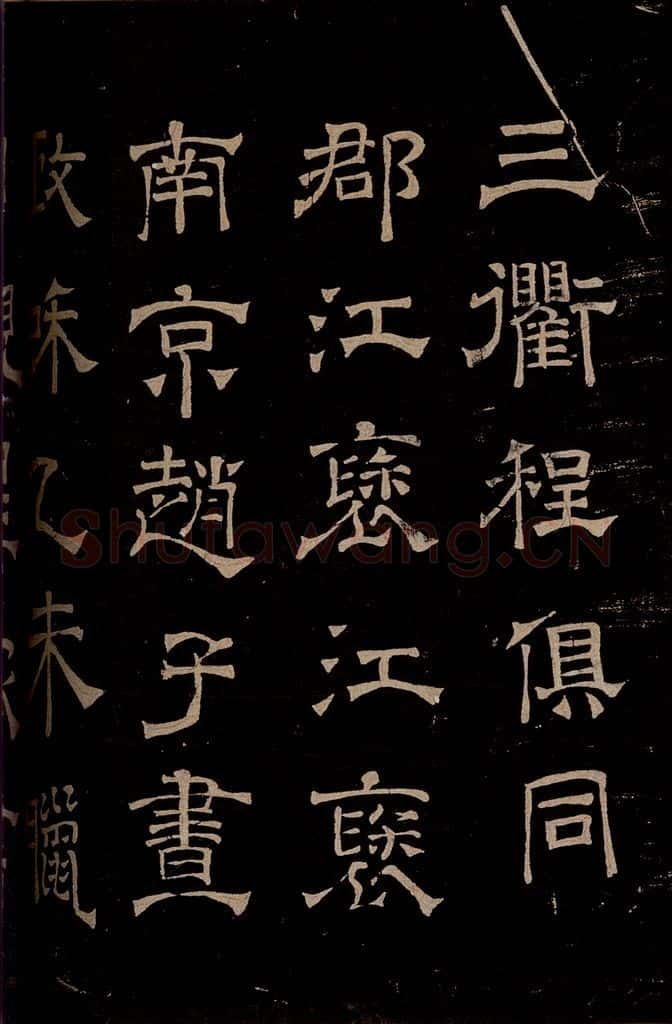 三衢程俱同
郡江褎江褒
南京趙子晝
政咊乙未臘
Shufawang.CN